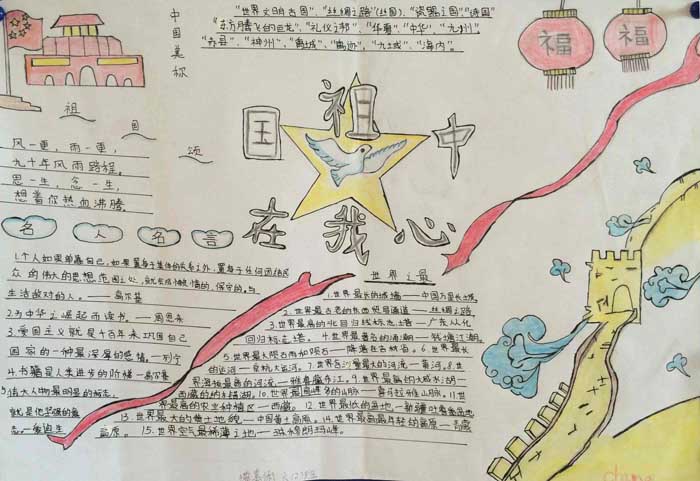 中国美称
"世界文明古国"，"丝绸之路"（丝国），"瓷器之国"，"诗国"
"东方腾飞的巨龙"，"礼仪之邦"，"华夏"，"中华"，"九州"，
"赤县"，"神州"，"禹城"，"禹迹"，"九域"，"海内"。
福
福
祖国颂
风一更，雨一更，
九十年风雨路程。
思一生，念一生，
想着你热血沸腾
祖国
在我心中
名人名言
1.个人如果单靠自己，如果置身于集体的关系之外，置身于任何团结民
众的伟大的思想范围之处，就会成怠惰的、保守的、与
生活敌对的人。——高尔基
2.为中华之崛起而读书。——周恩来
3.爱国主义就是千百年来巩固自己
国家的一种最深厚的感情。——列宁
4.书籍是人类进步的阶梯——高尔基
5.伟大人
就是他坚强的意
志。——爱迪生
世界之最
1.世界最长的城墙——中国万里长城。
2.世界最古老的东西贸易通道——丝绸之路。
3.世界最高的北回归线标志塔——广东从化
回归标志塔。4.世界最著名的涌潮——钱塘江潮。
5.世界最大陨石雨和陨石——降落在吉林省。6.世界最长
的运河——京杭大运河。7.世界含沙量最大的河流——黄河。8.世
界海拔最高的河流——雅鲁藏布江。9.世界最高的大咸水湖——
西藏的纳木错湖。10.世界最高的山脉——喜马拉雅山脉。11.世
界最高的农业种植区——西藏。12.世界最低的盆地——新疆吐鲁番盆地
13.世界最大的黄土地貌——中国黄土高原。14.世界最高最年轻的高原——青藏
高原。15.世界空气最稀薄之地——珠穆朗玛峰。